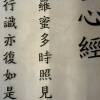 心經
羅蜜多時照見
行識亦復如是